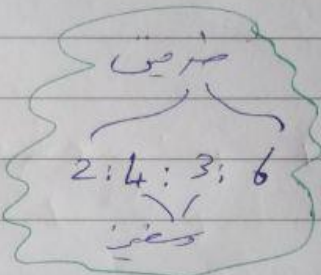 طرفین
2:4:3:6
وسطین